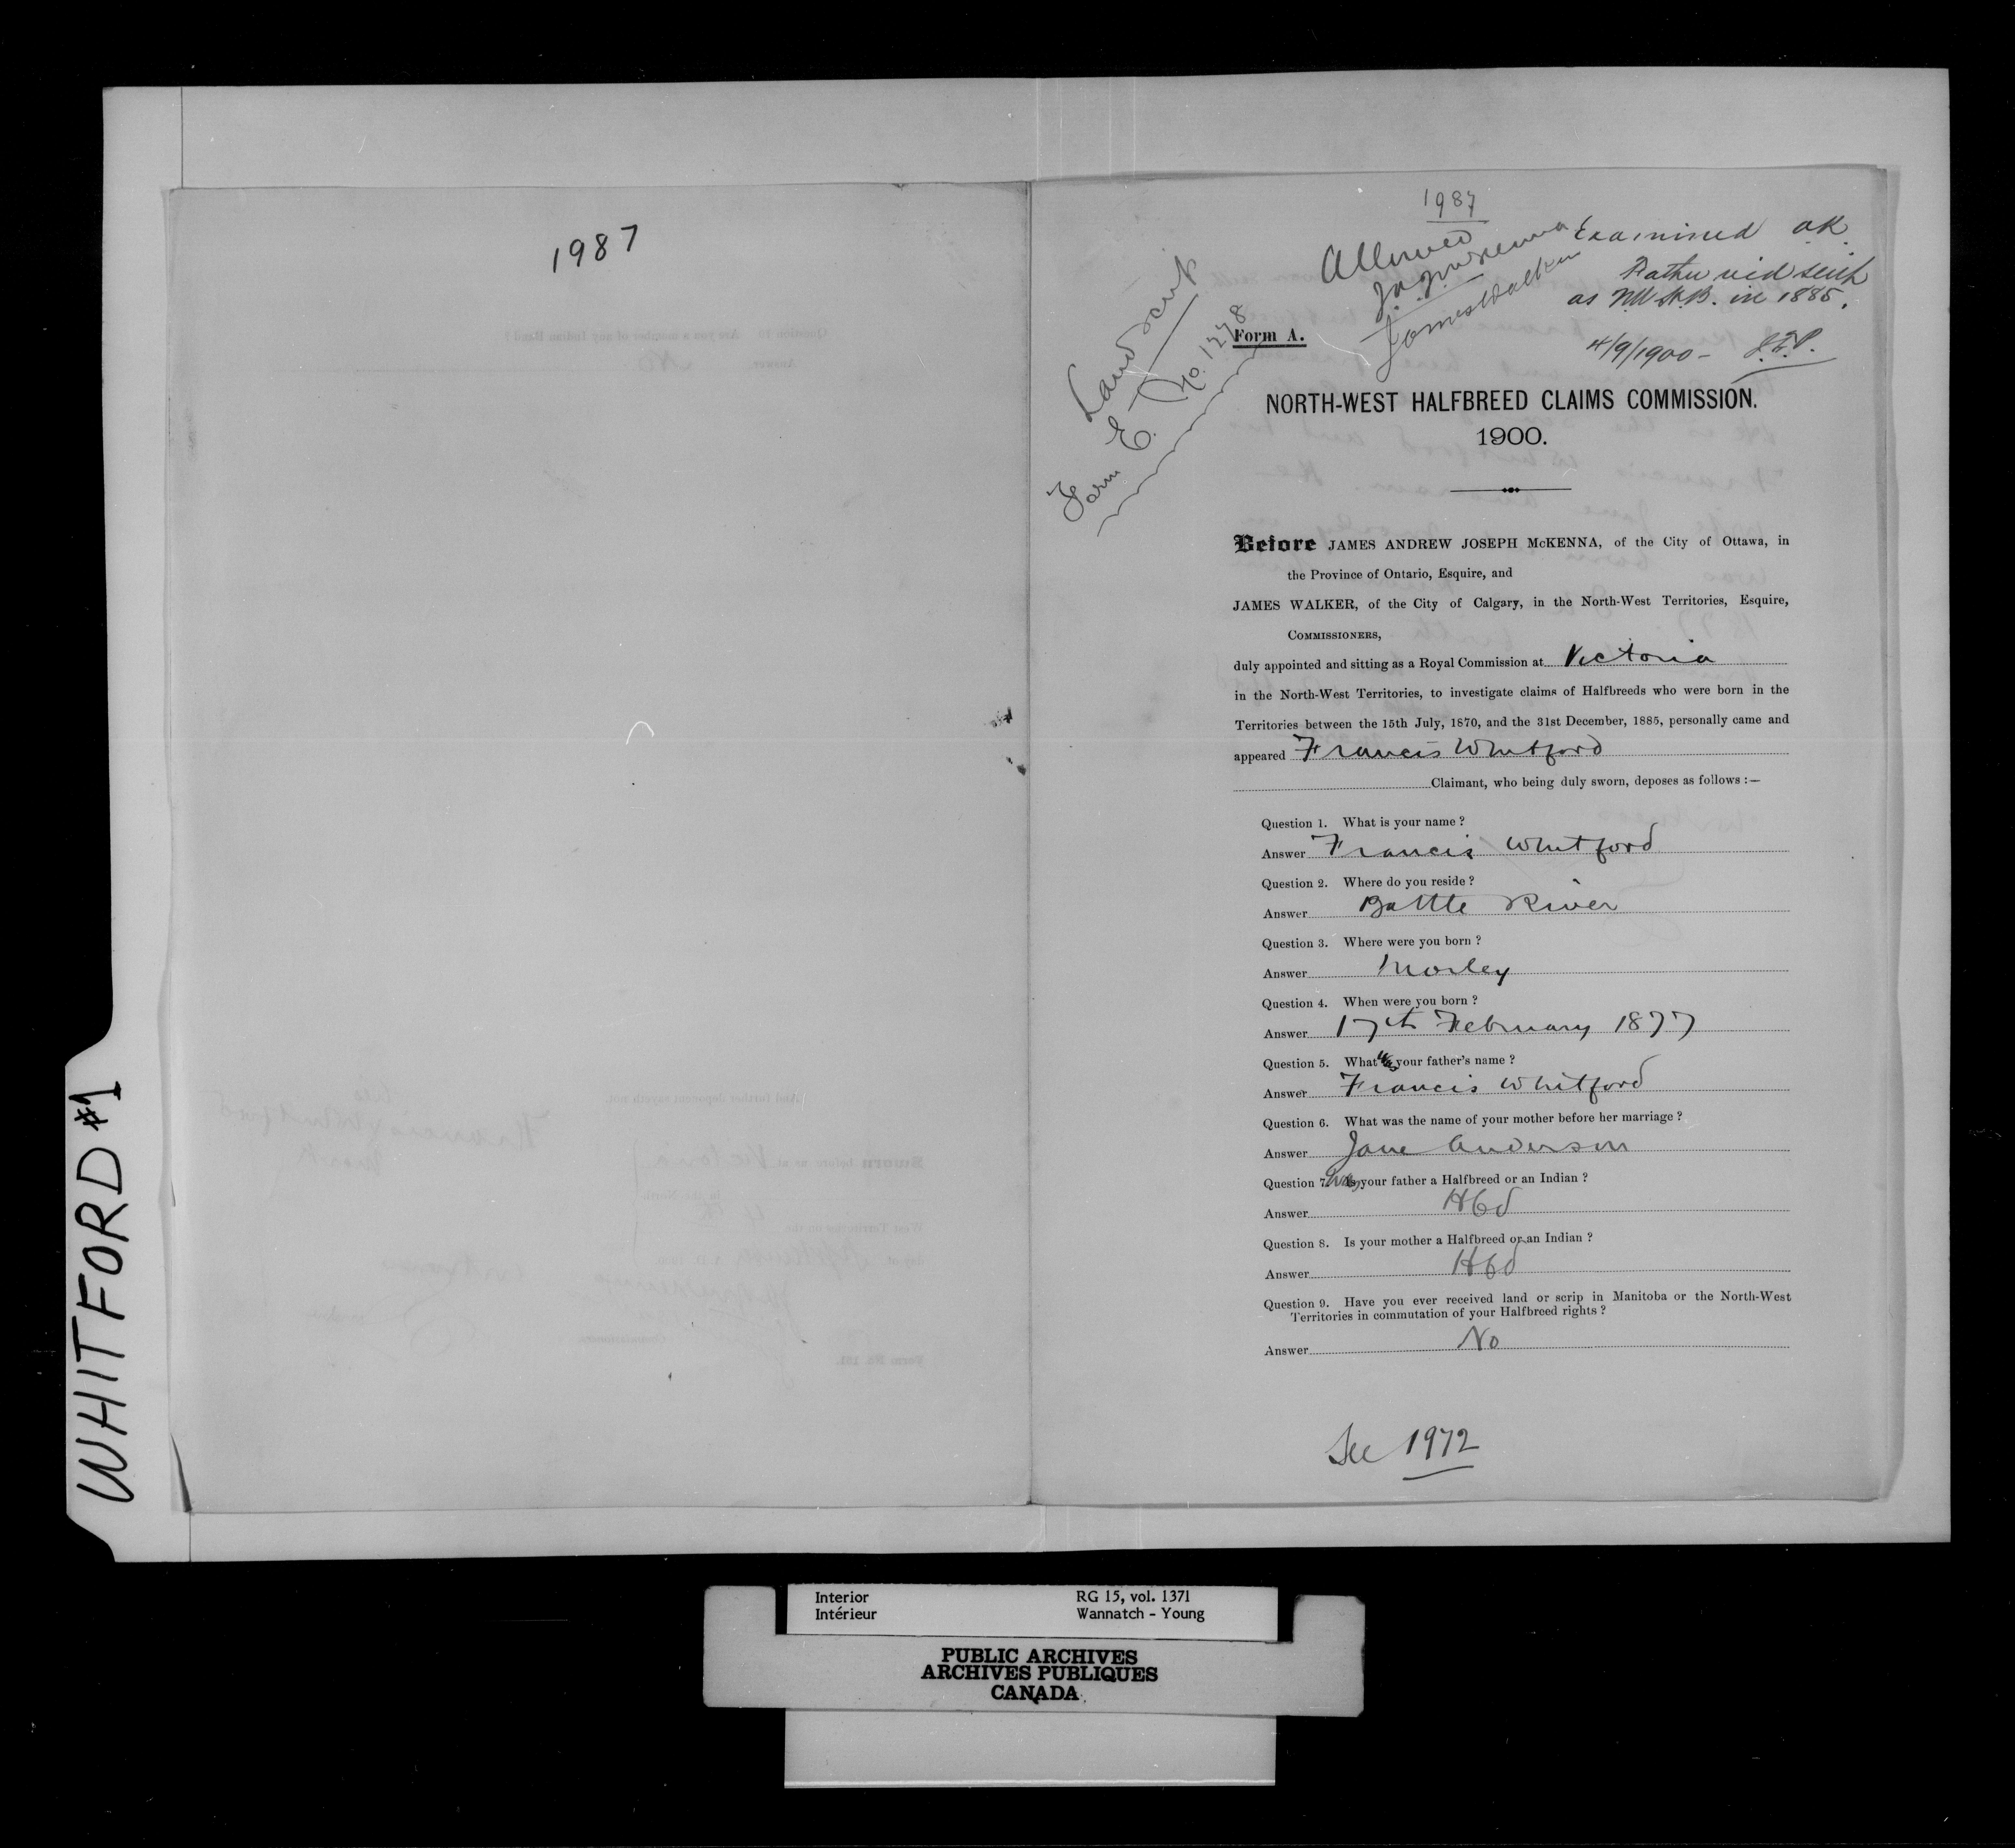 1987
WHITFORD #1
1987
Allowed
J. A. J. McKenna
James Walker
Examined OK.
Father recd scrip
as N.W.H.B. in 1885.
4/9/1900 - J.E.P.
Land scrip
Form E. - No. 1278
Form A.
NORTH-WEST HALFBREED CLAIMS COMMISSION.
1900.
Before JAMES ANDREW JOSEPH McKENNA, of the City of Ottawa, in
the Province of Ontario, Esquire, and
JAMES WALKER, of the City of Calgary, in the North-West Territories, Esquire,
COMMISSIONERS,
duly appointed and sitting as a Royal Commission at Victoria
in the North-West Territories, to investigate claims of Halfbreeds who were born in the
Territories between the 15th July, 1870, and the 31st December, 1885, personally came and
appeared Francis Whitford
Claimant, who being duly sworn, deposes as follows :—
Question 1. What is your name ?
Answer Francis Whitford
Question 2. Where do you reside ?
Answer Battle River
Question 3. Where were you born ?
Answer Morley
Question 4. When were you born ?
Answer 17th February 1877
Question 5. What was your father's name ?
Answer Francis Whitford
Question 6. What was the name of your mother before her marriage ?
Answer Jane Anderson
Question 7. Was your father a Halfbreed or an Indian ?
Answer Hbd
Question 8. Is your mother a Halfbreed or an Indian ?
Answer Hbd
Question 9. Have you ever received land or scrip in Manitoba or the North-West
Territories in commutation of your Halfbreed rights ?
Answer No
See 1972
Interior RG 15, vol. 1371
Intérieur Wannatch - Young
PUBLIC ARCHIVES
ARCHIVES PUBLIQUES
CANADA